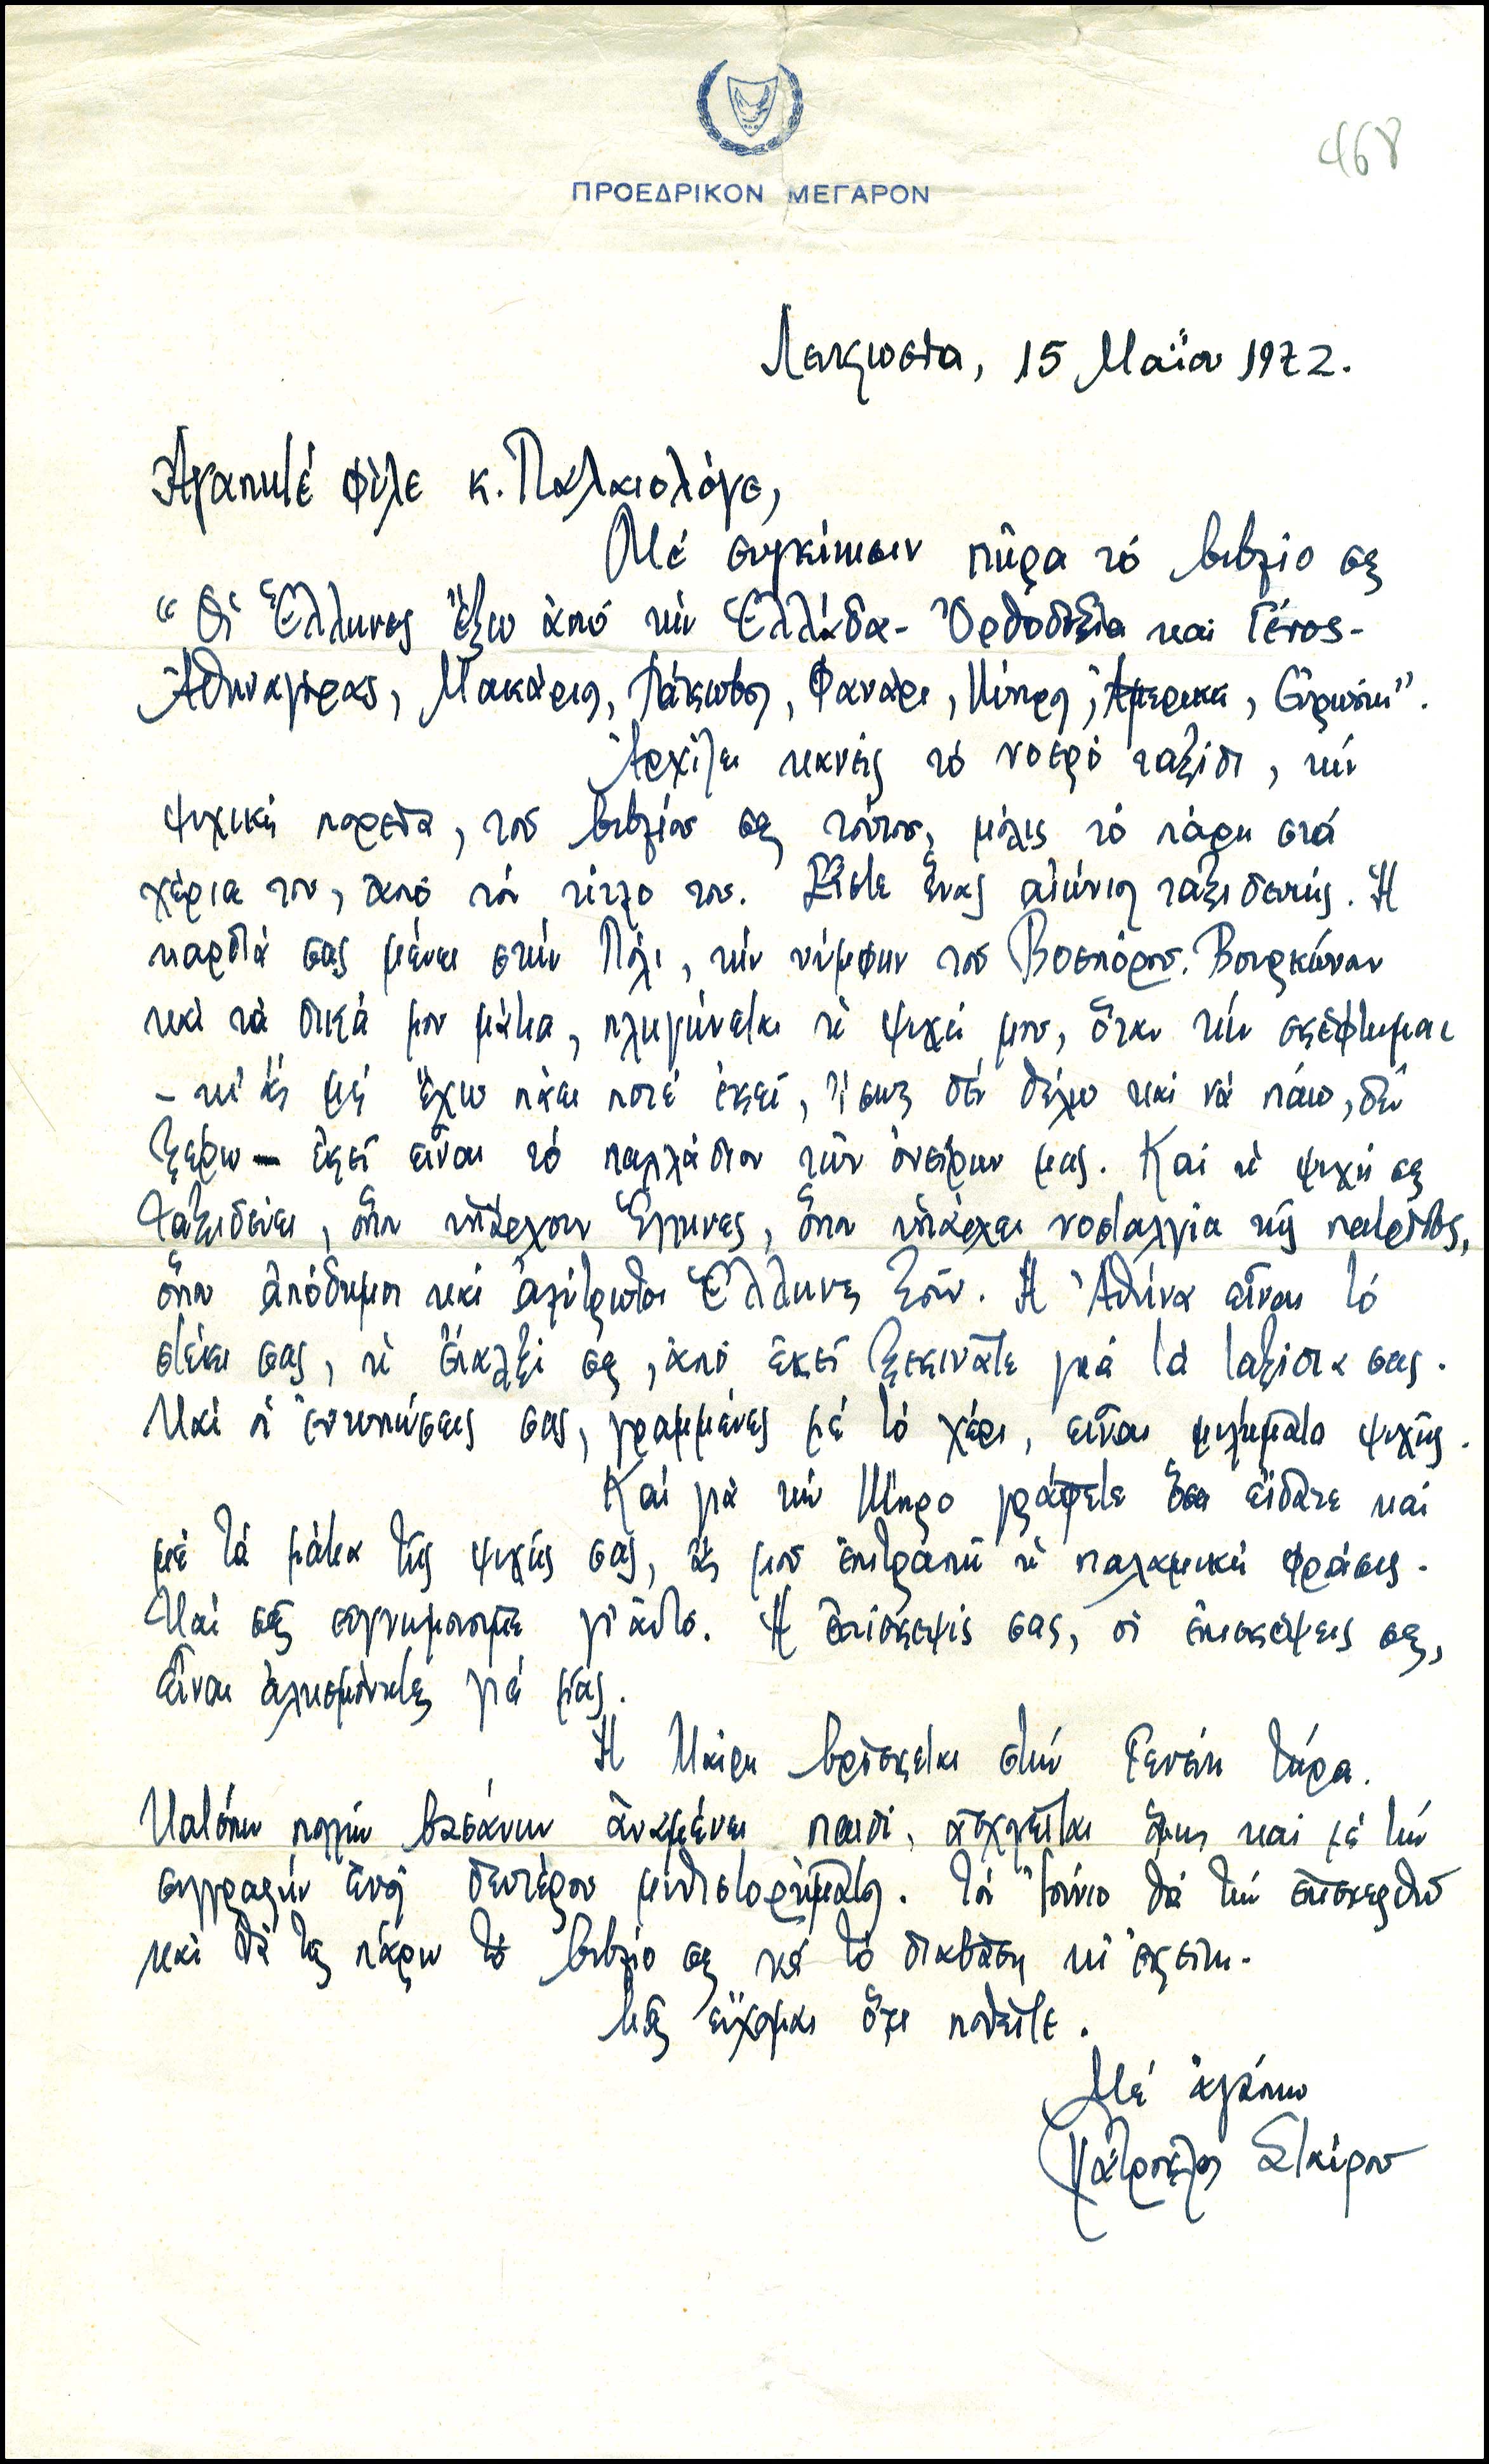 468
ΠΡΟΕΔΡΙΚΟΝ ΜΕΓΑΡΟΝ
Λευκωσία, 15 Μαΐου 1972.
Ἀγαπητέ φίλε κ. Παλαιολόγε,
Μέ συγκίνησιν πῆρα τό βιβλίο σας
“Οἱ Ἕλληνες ἔξω ἀπό τήν Ἑλλάδα - Ὀρθοδοξία καί Γένος -
Ἀθηναγόρας, Μακάριος, Ἰάκωβος, Φανάρι, Κύπρος, Ἀμερική, Εὐρώπη”.
Ἀρχίζει κανείς τό νοερό ταξίδι, τήν
ψυχική πορεία, τοῦ βιβλίου σας τούτου, μόλις τό πάρη στά
χέρια του, ἀπό τόν τίτλο του. Εἶστε ἕνας αἰώνιος ταξιδευτής. Ἡ
καρδιά σας μένει στήν Πόλι, τήν νύμφην τοῦ Βοσπόρου. Βουρκώνουν
καί τά δικά μου μάτια, πληγώνεται ἡ ψυχή μου, ὅταν τήν σκέφτωμαι
- κι ἄς μή ἔχω πάει ποτέ ἐκεῖ, ἴσως δέν θέλω καί νά πάω, δέν
ξέρω - ἐκεῖ εἶναι τό παλλάδιον τῶν ὀνείρων μας. Καί ἡ ψυχή σας
ταξιδεύει, ὅπου ὑπάρχουν Ἕλληνες, ὅπου ὑπάρχει νοσταλγία τῆς πατρίδος,
ὅπου ἀπόδημοι καί ἀλύτρωτοι Ἕλληνες ζοῦν. Ἡ Ἀθήνα εἶναι τό
στέκι σας, ἡ ἔπαλξί σας, ἀπό ἐκεῖ ξεκινᾶτε γιά τά ταξίδια σας.
Καί οἱ ἐντυπώσεις σας, γραμμένες μέ τό χέρι, εἶναι μιλήματα ψυχῆς.
Καί γιά τήν Κύπρο γράφετε ὅσα εἴδατε καί
μέ τά μάτια τῆς ψυχῆς σας, ἄς μοῦ ἐπιτραπῆ ἡ παλαμική φράσις.
Καί σᾶς εὐγνωμονοῦμε γι' αὐτό. Ἡ ἐπίσκεψίς σας, οἱ ἐπισκέψεις σας,
εἶναι ἀλησμόνητες γιά μᾶς.
Ἡ Καίρη βρίσκεται στήν Γενεύη τώρα.
Κατόπιν πολλῶν βασάνων ἀναμένει παιδί, ἀσχολεῖται ὅμως καί μέ τήν
συγγραφήν ἑνός δευτέρου μυθιστορήματος. Τόν Ἰούνιο θά τήν ἐπισκεφθῶ
καί θά τῆς πάρω τό βιβλίο σας νά τό διαβάση κι ἐκείνη.
Σᾶς εὔχομαι ὅτι ποθεῖτε.
Μέ ἀγάπην
Πάτροκλος Σταύρου